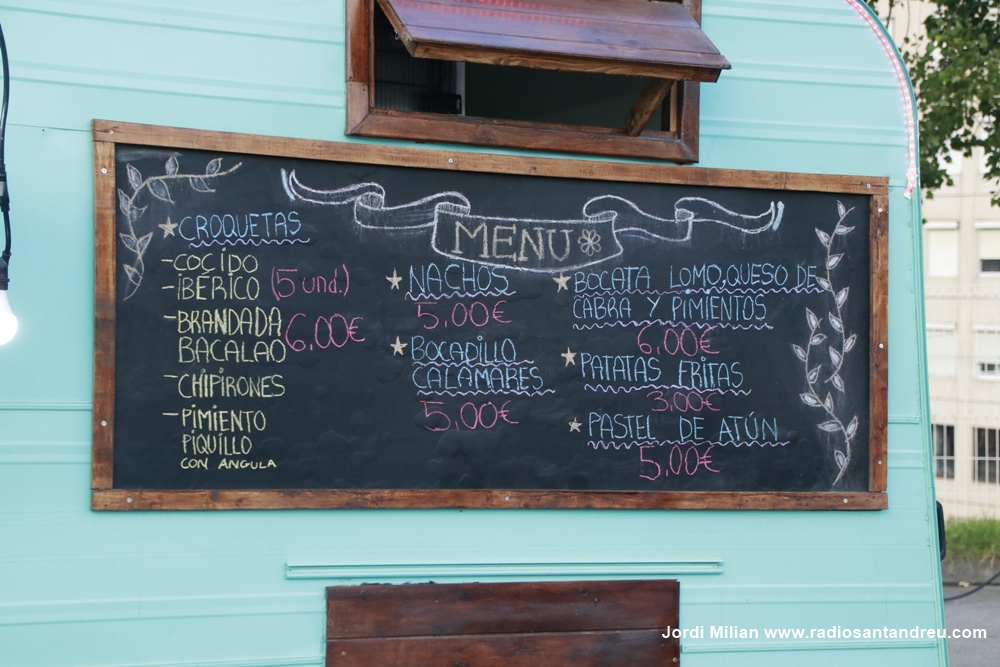 MENU
CROQUETAS
- COCIDO
- IBÉRICO
(5 und.)
6,00€
- BRANDADA
BACALAO
- CHIPIRONES
- PIMIENTO
PIQUILLO
CON ANGULA
NACHOS
5,00€
BOCADILLO
CALAMARES
5,00€
BOCATA LOMO, QUESO DE
CABRA Y PIMIENTOS
6,00€
PATATAS FRITAS
3,00€
PASTEL DE ATÚN
5,00€
Jordi Milian www.radiosantandreu.com